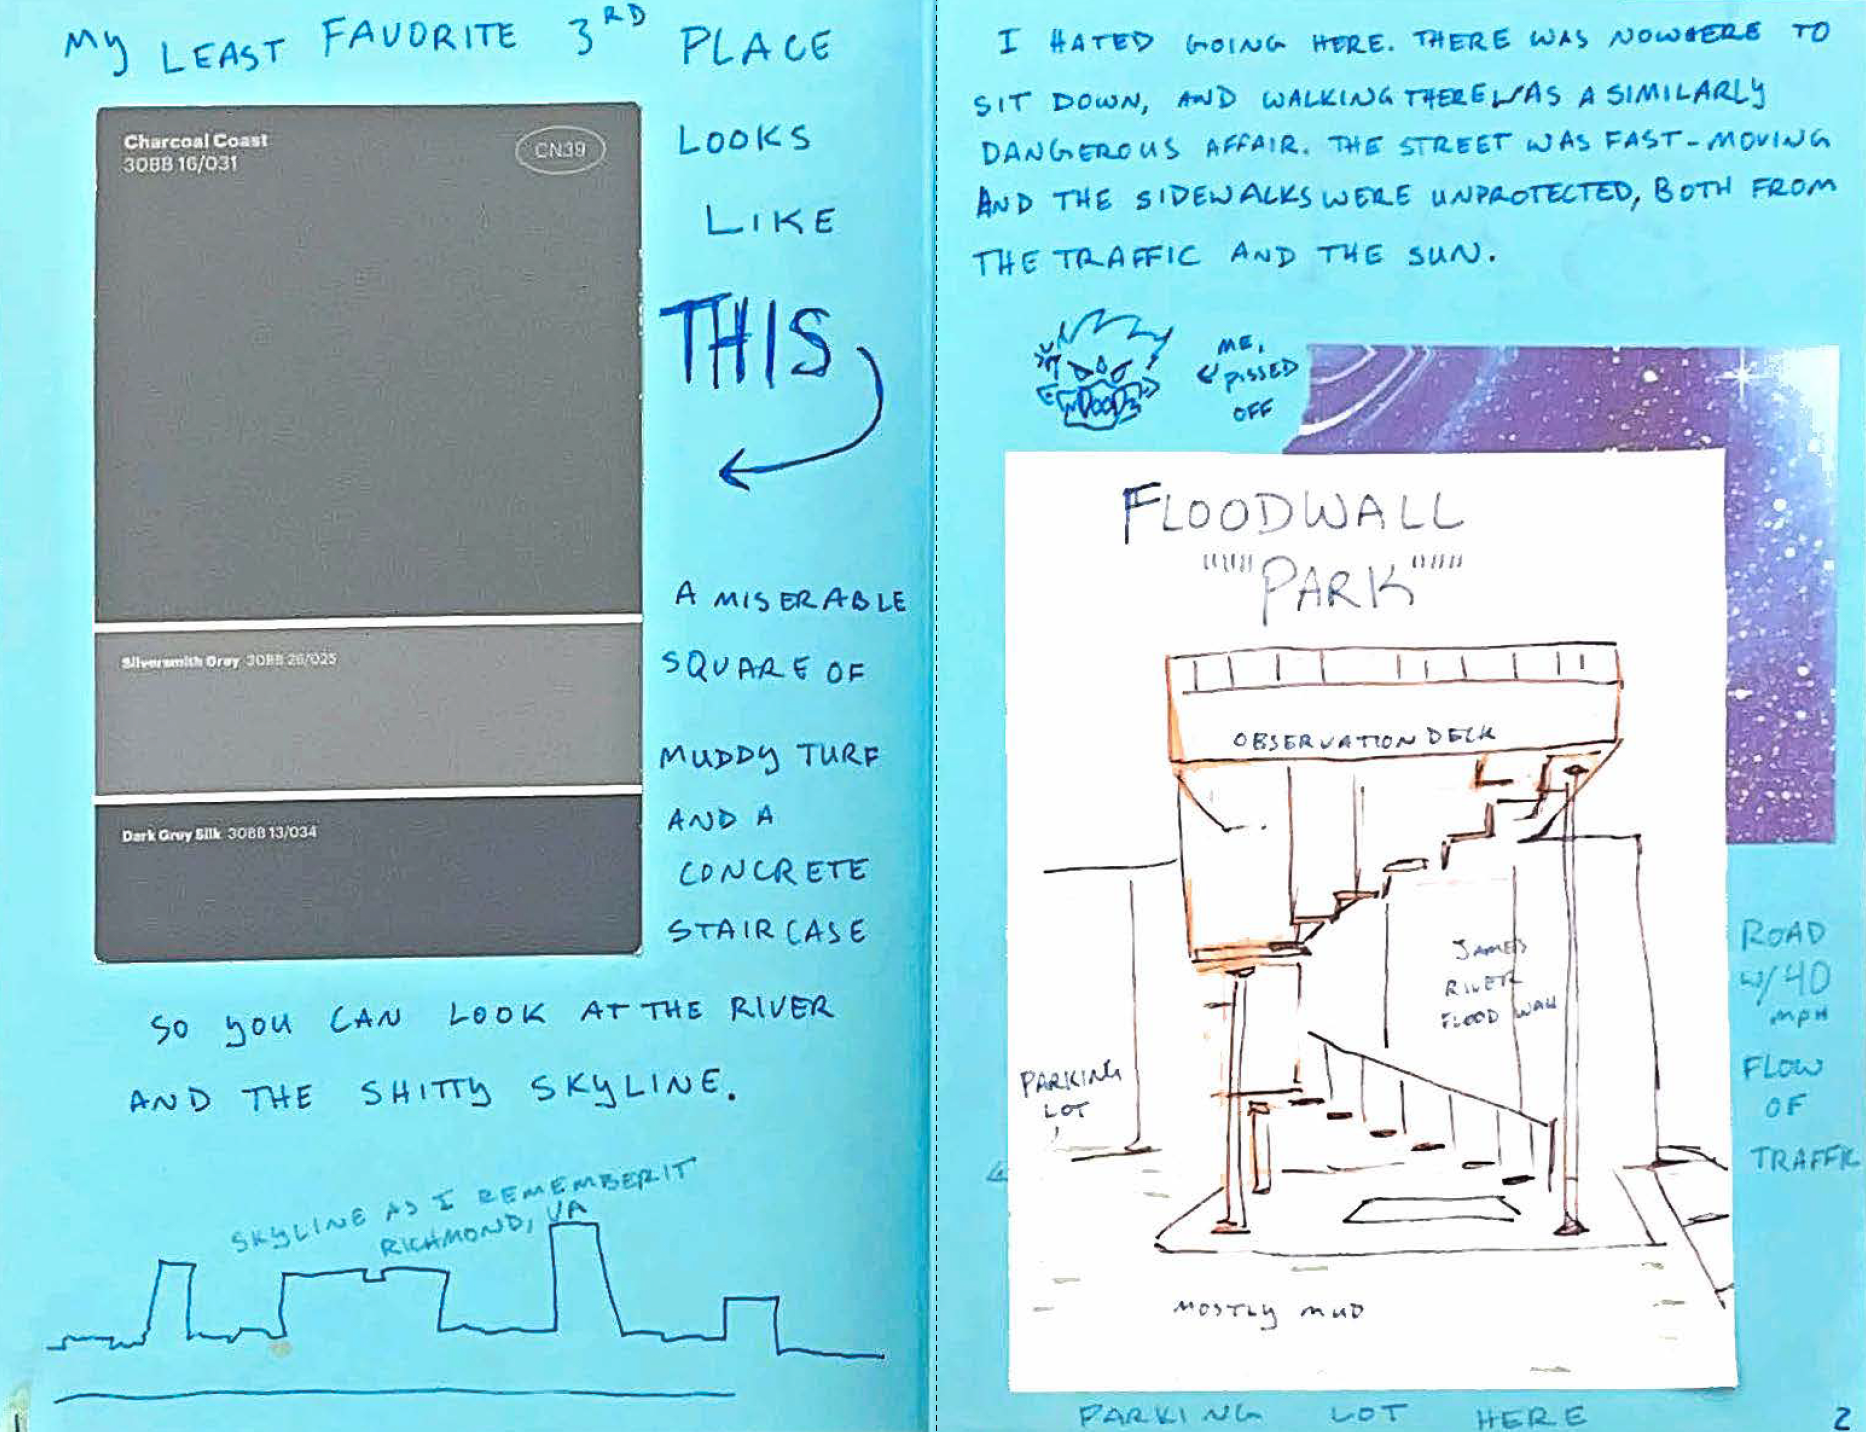 My LEAST FAVORITE 3RD PLACE
LOOKS
LIKE
THIS
Charcoal Coast
30BB 16/031
CN39
Silversmith Grey 30BB 26/025
Dark Grey Silk 30BB 13/034
A MISERABLE
SQUARE OF
MUDDY TURF
AND A
CONCRETE
STAIRCASE
SO YOU CAN LOOK AT THE RIVER
AND THE SHITTY SKYLINE.
SKYLINE AS I REMEMBER IT
RICHMOND, VA
1
I HATED GOING HERE. THERE WAS NOWHERE TO
SIT DOWN, AND WALKING THERE WAS A SIMILARLY
DANGEROUS AFFAIR. THE STREET WAS FAST-MOVING
AND THE SIDEWALKS WERE UNPROTECTED, BOTH FROM
THE TRAFFIC AND THE SUN.
ME,
PISSED
OFF
FLOODWALL
"""PARK"""
OBSERVATION DECK
JAMES
RIVER
FLOOD WALL
PARKING
LOT
MOSTLY MUD
ROAD
W/40
MPH
FLOW
OF
TRAFFIC
PARKING LOT HERE
2